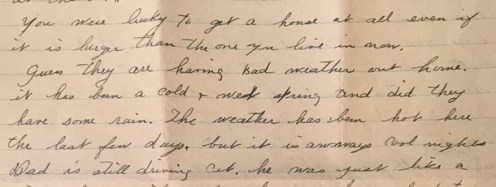 You were lucky to get a house at all even if
it is larger than the one you live in now.
Guess they are having bad weather out home.
it has been a cold & wet spring and did they
have some rain. The weather has been hot here
the last few days. but it is always cool nights
Dad is still driving cat. he was just like a